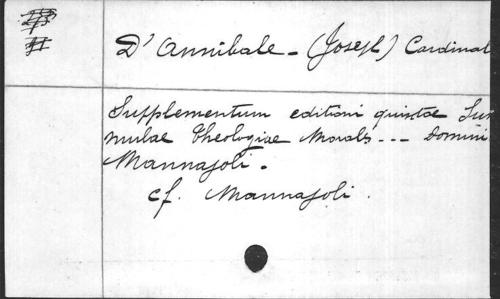 D'Annibale - (Joseph) Cardinal
Supplementum editioni quintae Sum
mulae Theologiae Moralis --- Domini
Mannajoli -
cf. Mannajoli.